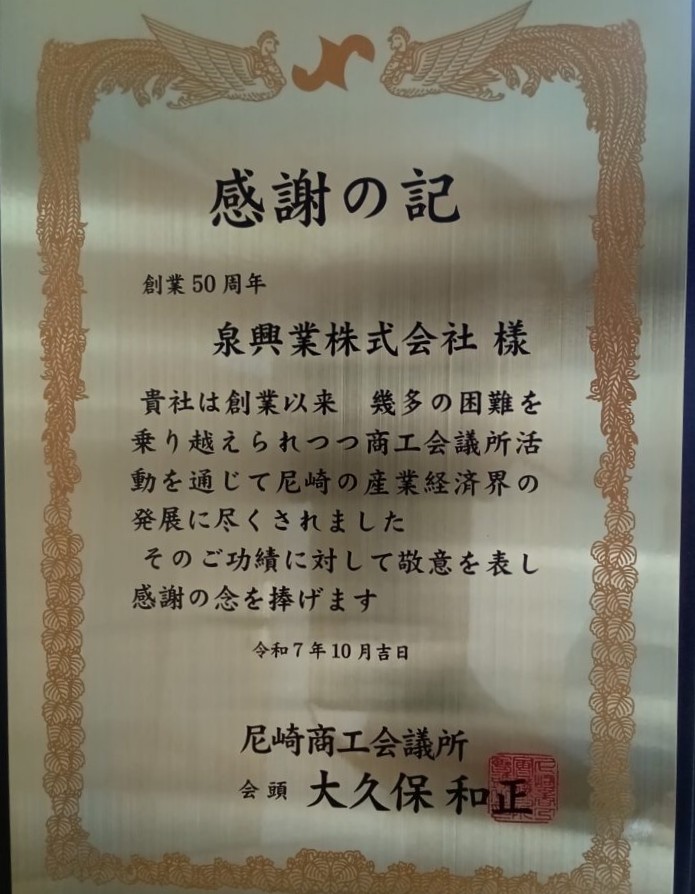 感謝の記
創業50周年
泉興業株式会社 様
貴社は創業以来　幾多の困難を
乗り越えられつつ商工会議所活
動を通じて尼崎の産業経済界の
発展に尽くされました
そのご功績に対して敬意を表し
感謝の念を捧げます
令和7年10月吉日
尼崎商工会議所
会頭 大久保 和正